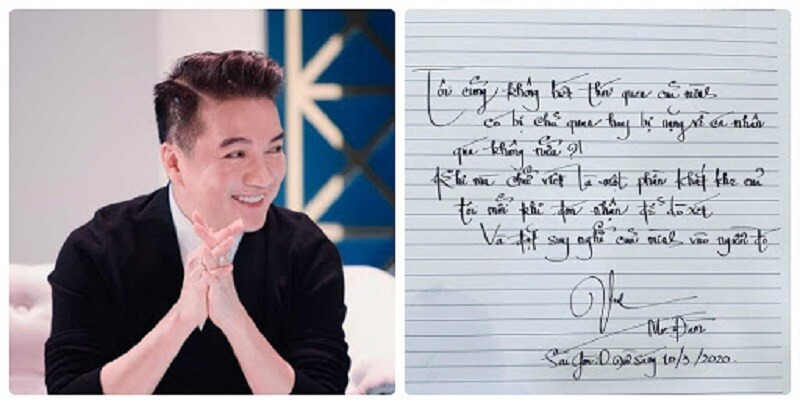 Tôi cũng không biết thói quen của mình
có bị chủ quan hay bị nặng về cá nhân
quá không nữa ?!
Khi mà chữ viết là một phần khắt khe của
tôi mỗi khi đón nhận để dò xét
Và đặt suy nghĩ của mình vào người đó
Mr. Đàm
Sài Gòn sáng 10/3/2020.